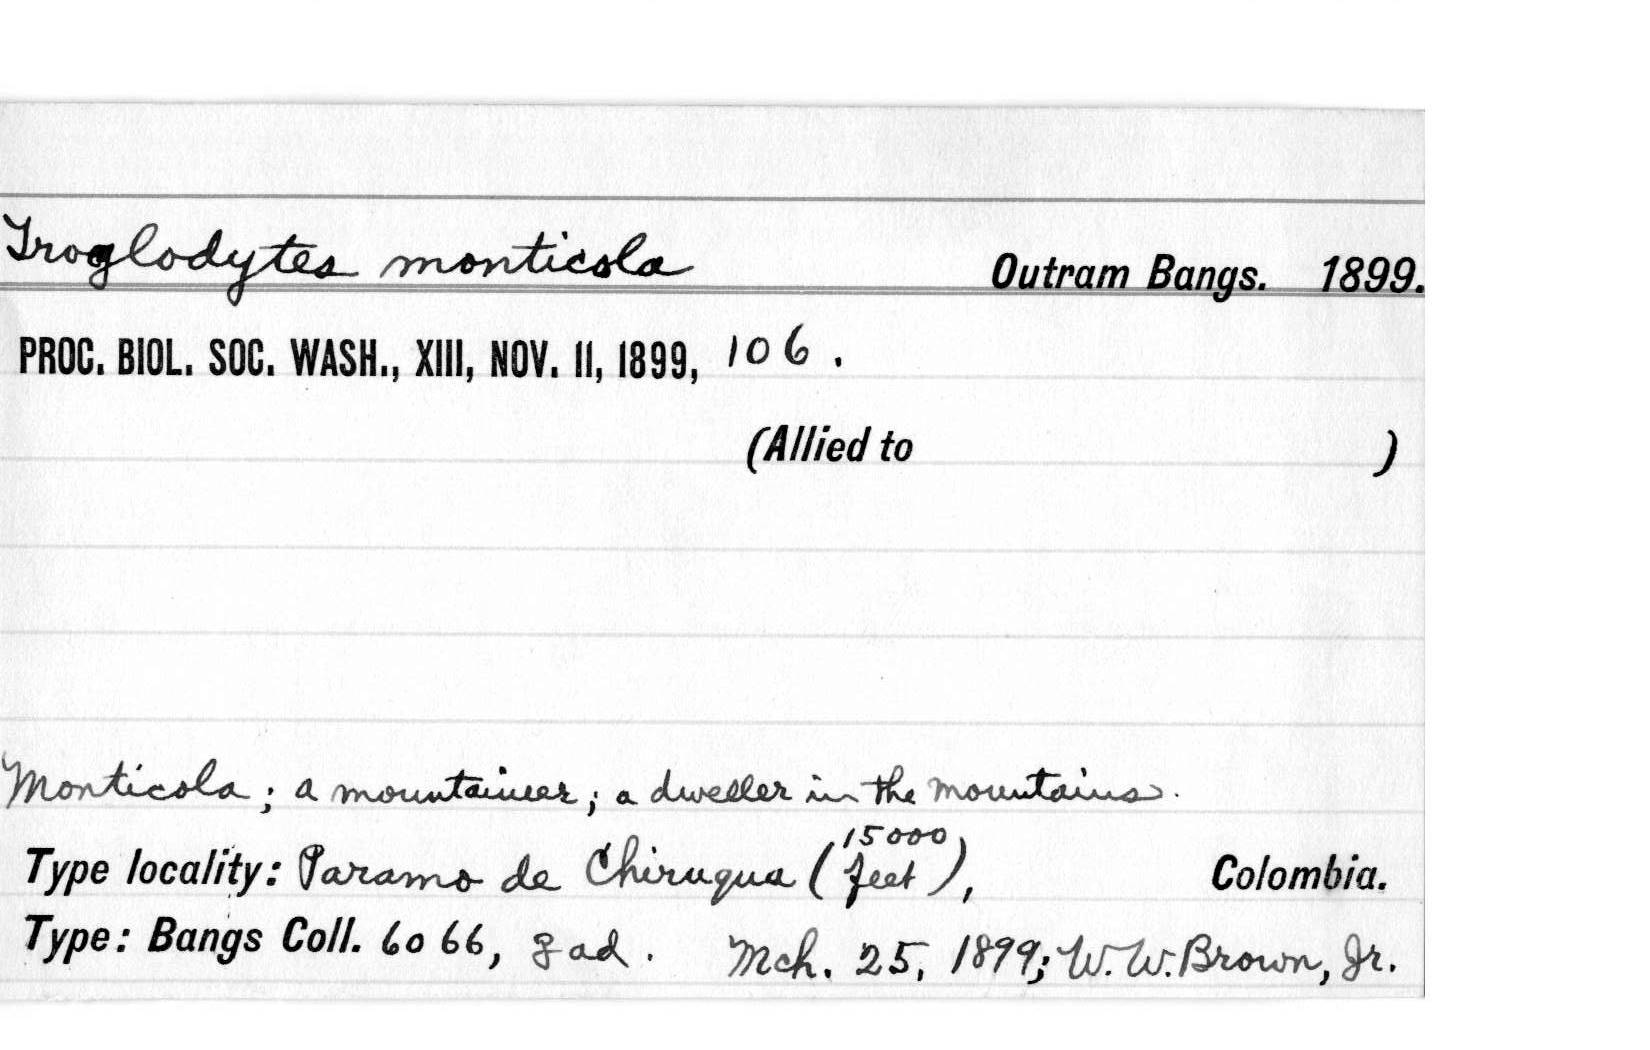 Troglodytes monticola Outram Bangs. 1899.
PROC. BIOL. SOC. WASH., XIII, NOV. 11, 1899, 106.
(Allied to )
Monticola; a mountaineer; a dweller in the mountains.
Type locality: Paramo de Chiruqua (15000 feet), Colombia.
Type: Bangs Coll. 6066, ad. Mch. 25, 1899; W. W. Brown, Jr.